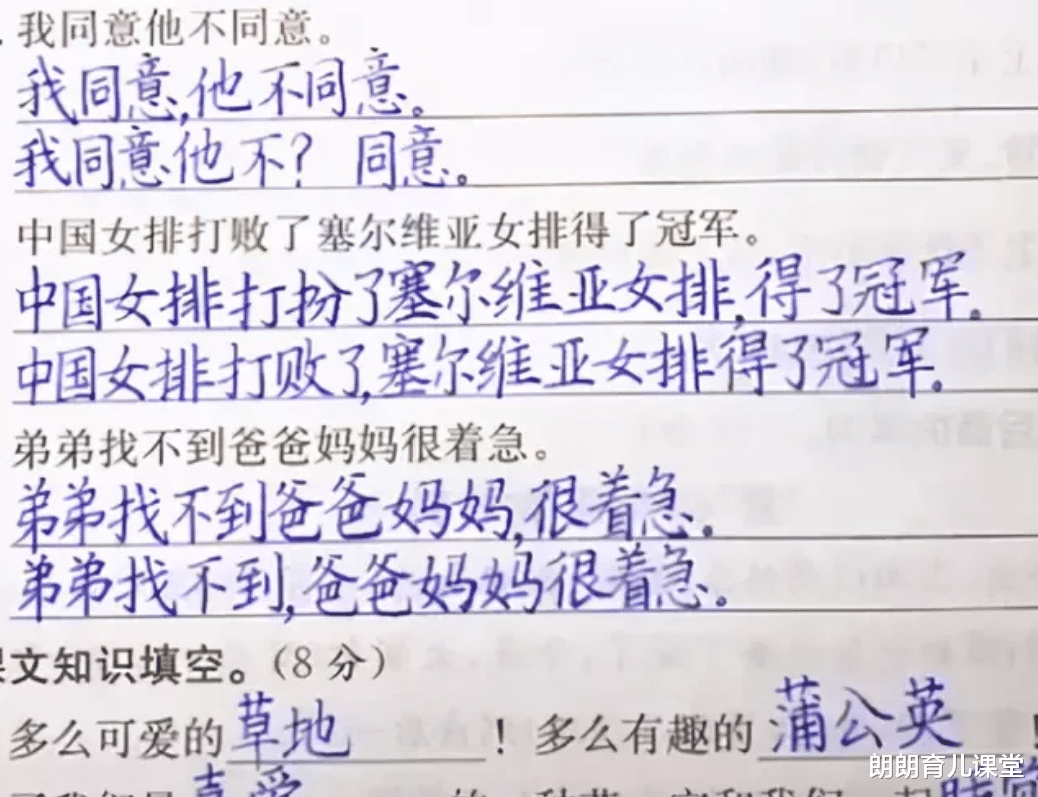 . 我同意他不同意。
我同意,他不同意。
我同意他不? 同意。
中国女排打败了塞尔维亚女排得了冠军。
中国女排打扮了塞尔维亚女排,得了冠军。
中国女排打败了,塞尔维亚女排得了冠军.
弟弟找不到爸爸妈妈很着急。
弟弟找不到爸爸妈妈,很着急。
弟弟找不到,爸爸妈妈很着急。
文知识填空。(8分)
多么可爱的草地!多么有趣的蒲公英!
喜爱
朗朗育儿课堂